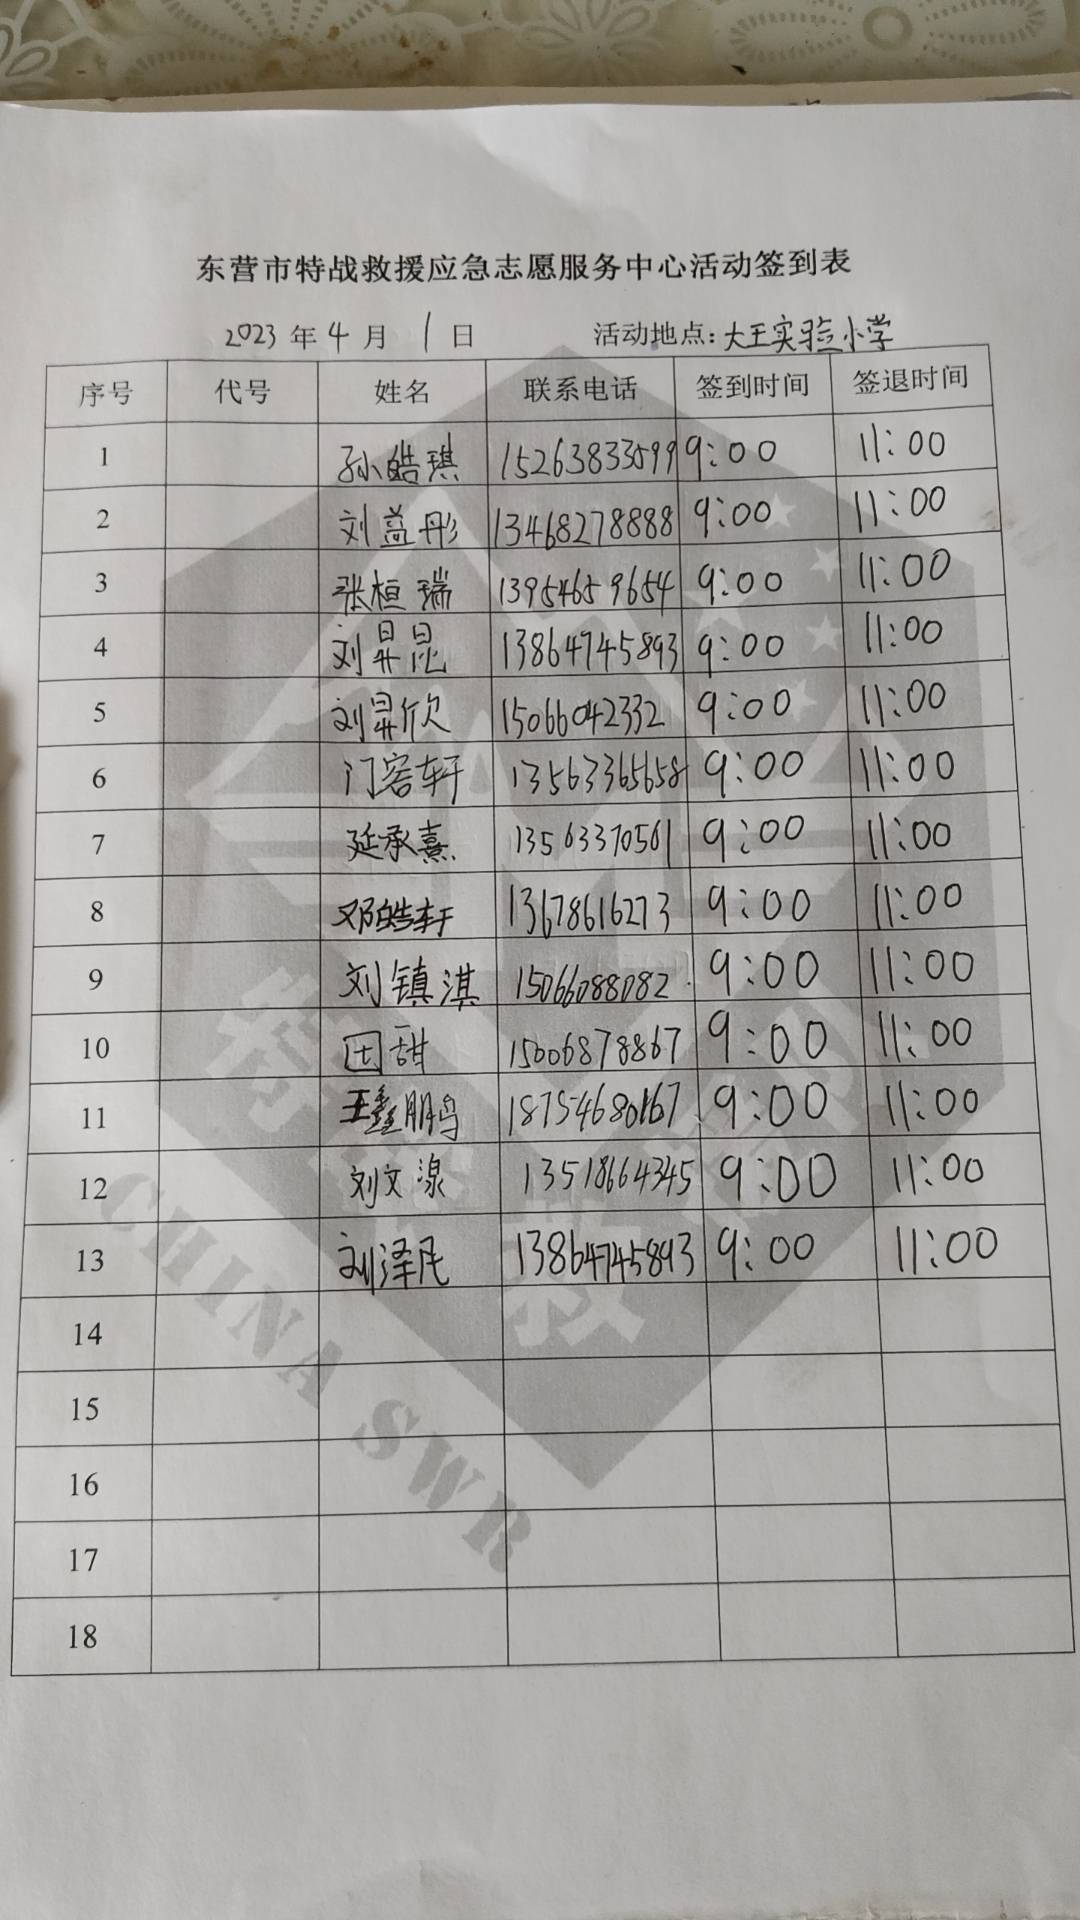 东营市特战救援应急志愿服务中心活动签到表
2023 年 4 月 1 日 活动地点:大王实验小学
序号 代号 姓名 联系电话 签到时间 签退时间
1 孙皓琪 15263833599 9:00 11:00
2 刘益彤 13468278888 9:00 11:00
3 张桓瑞 13954659654 9:00 11:00
4 刘昇昆 13864745893 9:00 11:00
5 刘昇欣 15066042332 9:00 11:00
6 门容轩 13563365658 9:00 11:00
7 延承熹 13563370561 9:00 11:00
8 邓皓轩 13678616273 9:00 11:00
9 刘镇淇 15066088082 9:00 11:00
10 田甜 15006878867 9:00 11:00
11 王鑫鹏 18754680167 9:00 11:00
12 刘文湶 13518664345 9:00 11:00
13 刘泽民 13864745893 9:00 11:00
14
15
16
17
18
CHINA SWR